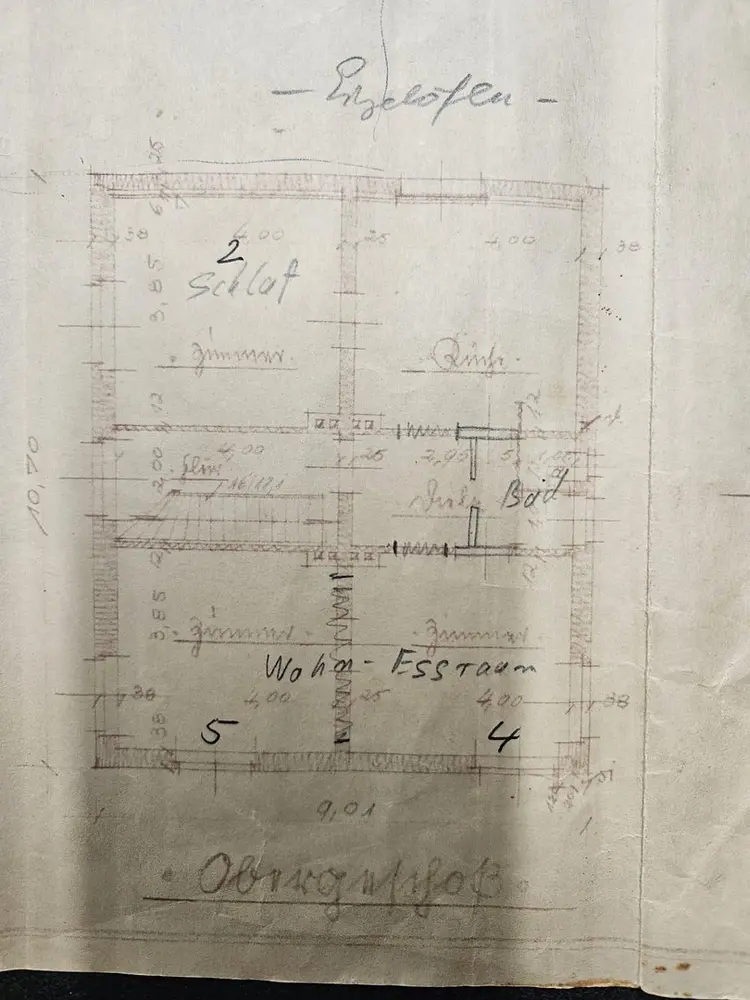 25
38 4,00 25 4,00 38
2
Schlaf
3,85
Zimmer. Küche.
12
4,00 25 2,95 5 1,00
Flur
2,00
Diele Bad
10,70
3,85
Zimmer Zimmer
Wohn-Essraum
38 4,00 25 4,00 38
5 4
38
9,01
Obergeschoß